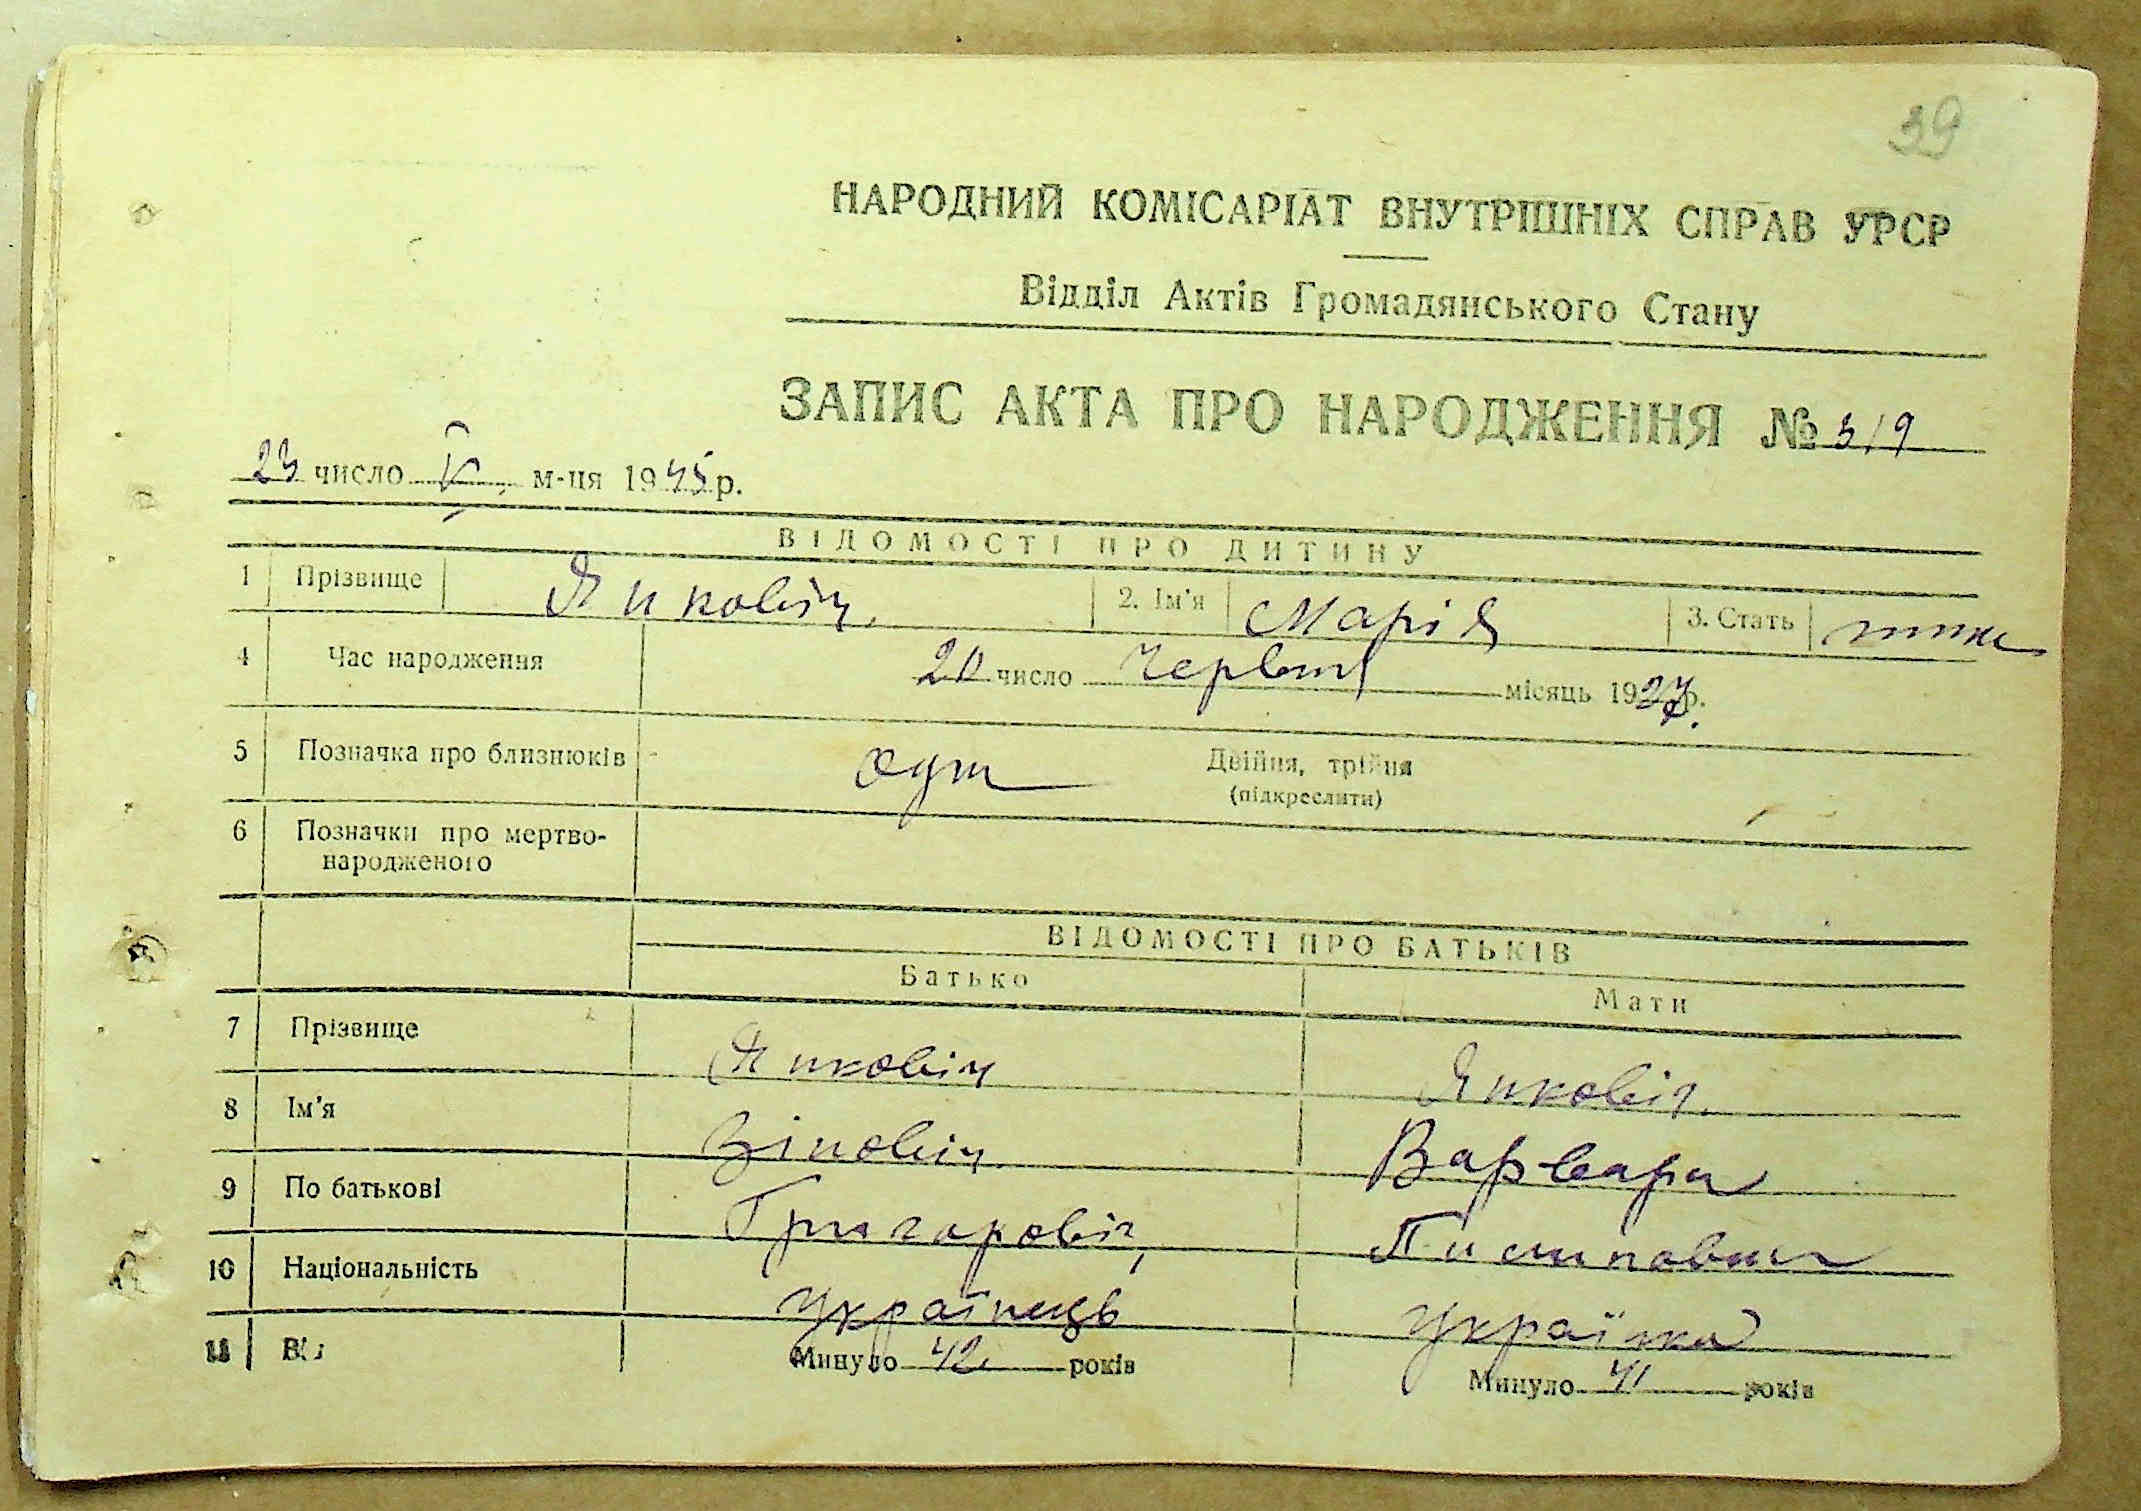 39
НАРОДНИЙ КОМІСАРІАТ ВНУТРІШНІХ СПРАВ УРСР
Відділ Актів Громадянського Стану
ЗАПИС АКТА ПРО НАРОДЖЕННЯ № 319
23 число V м-ця 1945 р.
ВІДОМОСТІ ПРО ДИТИНУ
1 Прізвище Янковіч. 2. Ім'я Марія 3. Стать
4 Час народження 20 число Червня місяць 1927 р.
5 Позначка про близнюків одна Двійня, трійня
(підкреслити)
6 Позначки про мертво-
народженого
ВІДОМОСТІ ПРО БАТЬКІВ
Батько Мати
7 Прізвище Янковіч Янковіч.
8 Ім'я Зіновіч Варвара
9 По батькові Григоровіч,
10 Національність Українець Українка
11 Вік Минуло 42 років Минуло 41 років